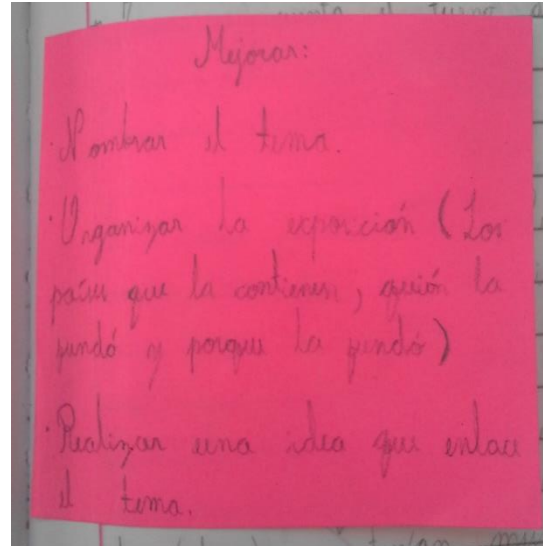 Mejorar:
· Nombrar el tema.
· Organizar la exposición (Los
países que la contienen, quién la
fundó y porque la fundó)
· Realizar una idea que enlace
el tema.